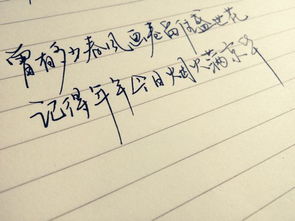 曾有多少春风画卷留住盛世花
记得年年今日烟火满京华